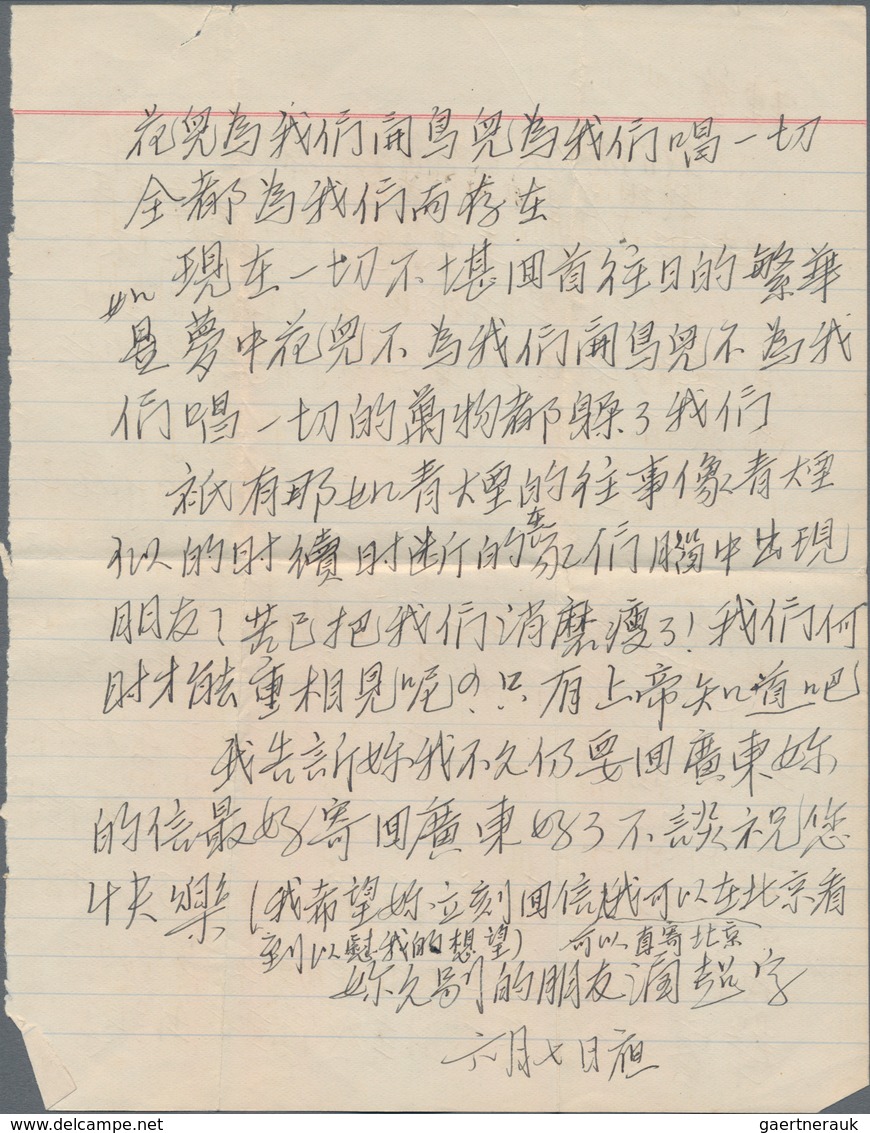 花兒為我們開鳥兒為我們唱一切
全都為我們而存在
現在一切不堪回首往日的繁華
如
是夢中花兒不為我們開鳥兒不為我
們唱一切的萬物都躲了我們
祇有那如青煙的往事像青煙
似的時續時斷的在我們腦中出現
朋友？苦已把我們消磨瘦了！我們何
時才能重相見呢？只有上帝知道吧
我告訴妳我不久仍要回廣東妳
的信最好寄回廣東好了不談祝您
快樂（我希望妳立刻回信我可以在北京看
到以慰我的想望）可以直寄北京
妳久別的朋友潤超字
六月七日
delcampe.net
gaertnerauk